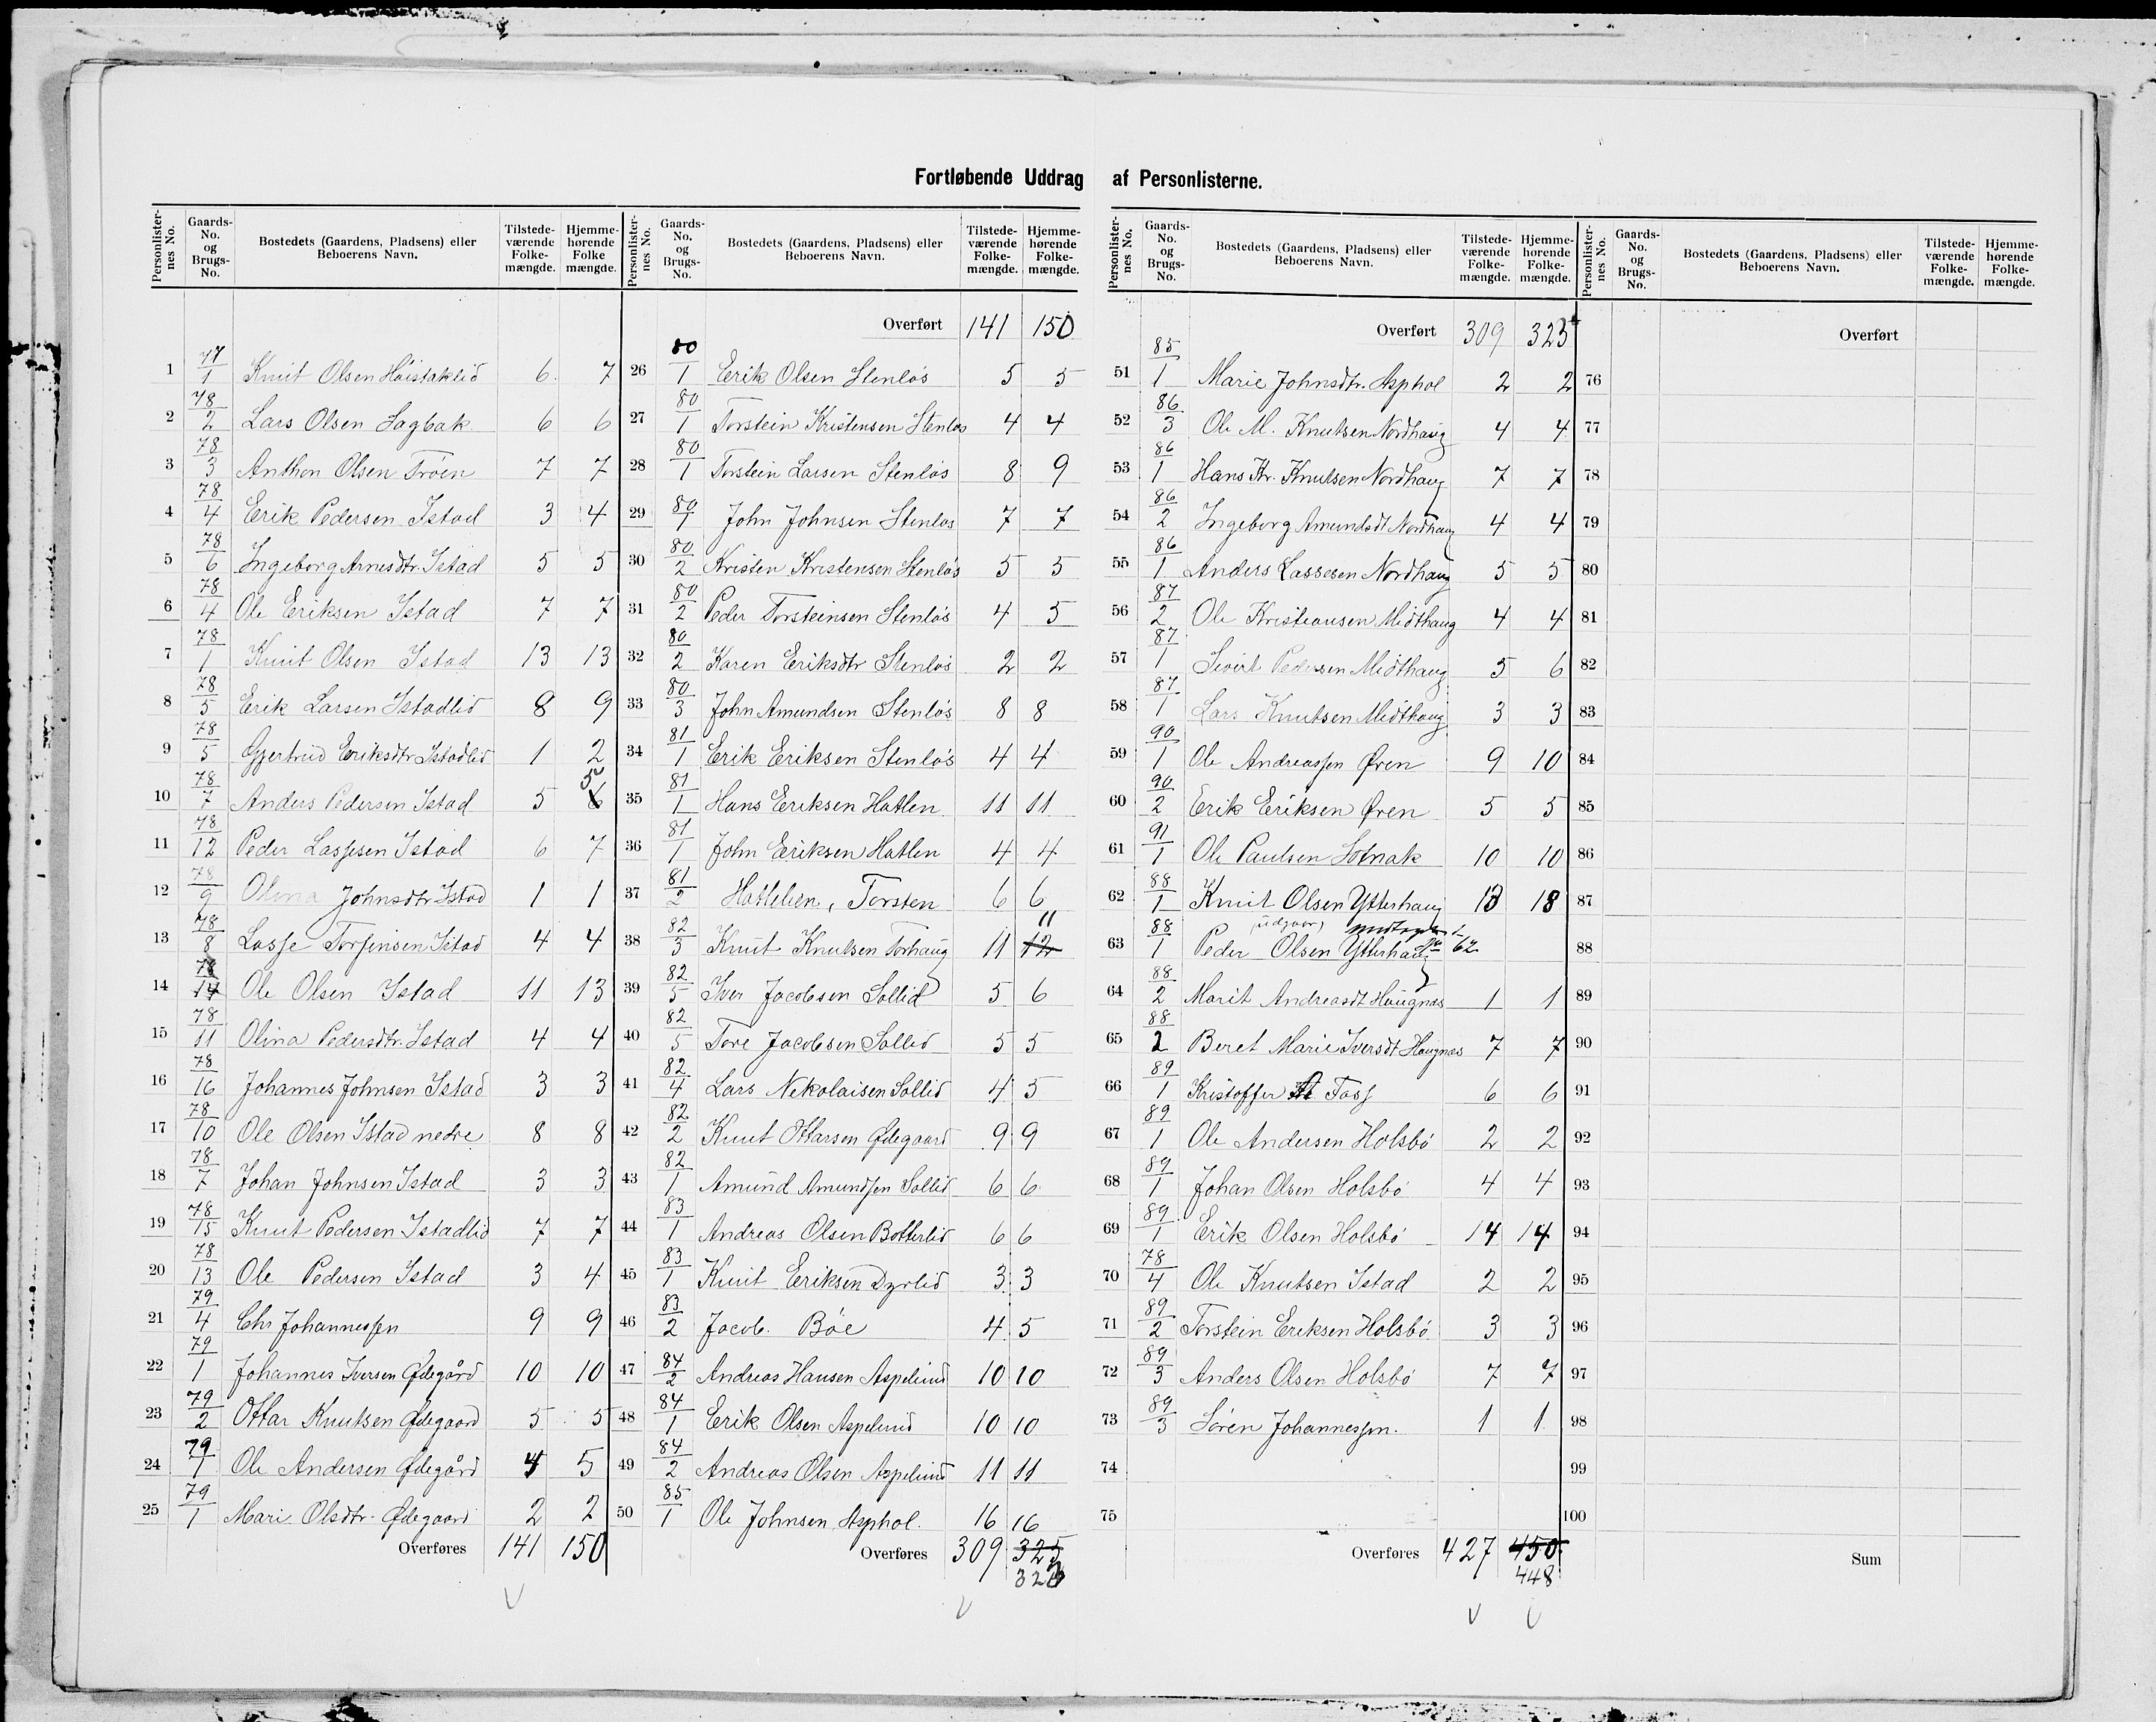 Fortløbende Uddrag af Personlisterne.
Personlister-nes No. Gaards-No. og Brugs-No. Bostedets (Gaardens, Pladsens) eller Beboerens Navn. Tilstede-værende Folke-mængde. Hjemme-hørende Folke mængde.
1 77/1 Knut Olsen Höistaklid 6 7
2 78/2 Lars Olsen Sagbak 6 6
3 78/3 Anthon Olsen Tröen 7 7
4 78/4 Erik Pedersen Istad 3 4
5 78/6 Ingeborg Arnesdtr. Istad 5 5
6 78/4 Ole Eriksen Istad 7 7
7 78/1 Knut Olsen Istad 13 13
8 78/5 Erik Larsen Istadlid 8 9
9 78/5 Gjertrud Eriksdtr Istadlid 1 2
10 78/7 Anders Pedersen Istad 5 6 5
11 78/12 Peder Lassesen Istad 6 7
12 78/9 Olina Johnsdtr Istad 1 1
13 78/8 Lasse Torfinsen Istad 4 4
14 78/14 Ole Olsen Istad 11 13
15 78/11 Olina Pedersdtr. Istad 4 4
16 78/16 Johannes Johnsen Istad 3 3
17 78/10 Ole Olsen Istad nedre 8 8
18 78/7 Johan Johnsen Istad 3 3
19 78/15 Knut Pedersen Istadlid 7 7
20 78/13 Ole Pedersen Istad 3 4
21 79/4 Chr Johannessen 9 9
22 79/1 Johannes Iversen Ødegård 10 10
23 79/2 Ottar Knutsen Ødegaard 5 5
24 79/1 Ole Andersen Ødegård 4 5
25 79/1 Mari Olsdtr. Ødegaard 2 2
Overføres 141 150
Personlister-nes No. Gaards-No. og Brugs-No. Bostedets (Gaardens, Pladsens) eller Beboerens Navn. Tilstede-værende Folke-mængde. Hjemme-hørende Folke-mængde.
Overført 141 150
26 80/1 Erik Olsen Stenlös 5 5
27 80/1 Torstein Kristensen Stenlös 4 4
28 80/1 Torstein Larsen Stenlös 8 9
29 80/1 John Johnsen Stenlos 7 7
30 80/2 Kristen Kristensen Stenlös 5 5
31 80/2 Peder Torsteinsen Stenlös 4 5
32 80/2 Karen Eriksdtr Stenlös 2 2
33 80/3 John Amundsen Stenlös 8 8
34 81/1 Erik Eriksen Stenlös 4 4
35 81/1 Hans Eriksen Hatlen 11 11
36 81/1 John Eriksen Hatlen 4 4
37 81/2 Hattelien, Torsten 6 6
38 82/3 Knut Knutsen Torhaug 11 12 11
39 82/5 Iver Jacobsen Sollid 5 6
40 82/5 Tore Jacobsen Sollid 5 5
41 82/4 Lars Nekolaisen Sollid 4 5
42 82/2 Knut Ottarsen Ødegaard 9 9
43 82/1 Amund Amundsen Sollid 6 6
44 83/1 Andreas Olsen Botterlid 6 6
45 83/1 Knut Eriksen Dyrlid 3 3
46 83/2 Jacob. Böe 4 5
47 84/2 Andreas Hansen Aspelund 10 10
48 84/1 Erik Olsen Aspelund 10 10
49 84/2 Andreas Olsen Aspelund 11 11
50 85/1 Ole Johnsen Asphol. 16 16
Overføres 309 325
323
Personlister-nes No. Gaards-No. og Brugs-No. Bostedets (Gaardens, Pladsens) eller Beboerens Navn. Tilstede-værende Folke-mængde. Hjemme-hørende Folke-mængde.
Overført 309 323
51 85/1 Marie Johnsdtr. Asphol 2 2
52 86/3 Ole M. Knutsen Nordhaug 4 4
53 86/1 Hans Kr. Knutsen Nordhaug 7 7
54 86/2 Ingeborg Amundsdt Nordhaug 4 4
55 86/1 Anders Lassesen Nordhaug 5 5
56 87/2 Ole Kristiansen Midthaug 4 4
57 87/1 Sivert Pedersen Midthaug 5 6
58 87/1 Lars Knutsen Midthaug 3 3
59 90/1 Ole Andreassen Øren 9 10
60 90/2 Erik Eriksen Øren 5 5
61 91/1 Ole Paulsen Sotnak 10 10
62 88/1 Knut Olsen Ytterhaug 18 18
udgaar,
63 88/1 Peder Olsen Ytterhaug 62
64 88/2 Marit Andreasdt Haugnes 1 1
65 88/2 Beret Marie Iversdt Haugnes 7 7
66 89/1 Kristoffer A Foss 6 6
67 89/1 Ole Andersen Holsbö 2 2
68 89/1 Johan Olsen Holsbö 4 4
69 89/1 Erik Olsen Holsbö 14 14
70 78/4 Ole Knutsen Istad 2 2
71 89/2 Torstein Eriksen Holsbö 3 3
72 89/3 Anders Olsen Holsbö 7 7
73 89/3 Sören Johannessen. 1 1
74
75
Overføres 427 450
448
Personlister-nes No. Gaards-No. og Brugs-No. Bostedets (Gaardens, Pladsens) eller Beboerens Navn. Tilstede-værende Folke-mængde. Hjemme-hørende Folke-mængde.
Overført
76
77
78
79
80
81
82
83
84
85
86
87
88
89
90
91
92
93
94
95
96
97
98
99
100
Sum